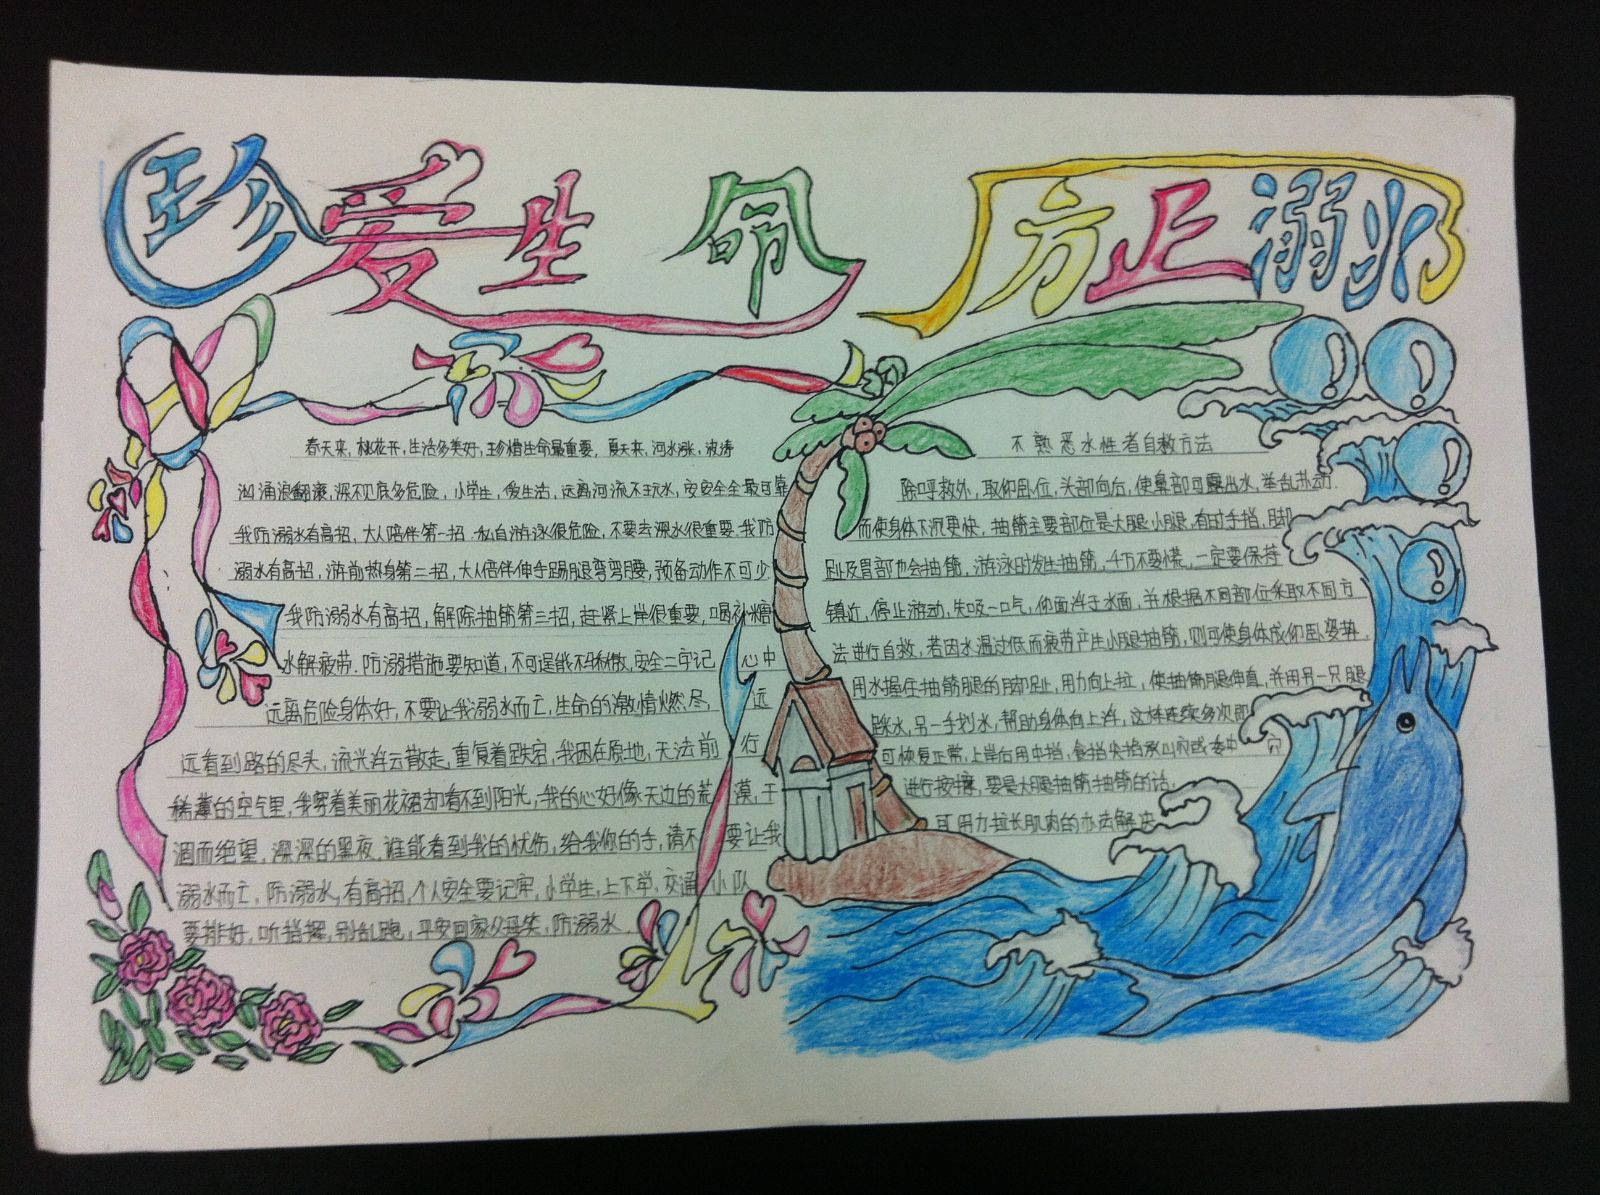 珍爱生命 防止溺水
春天来,桃花开,生活多美好,珍惜生命最重要,夏天来,河水涨,波涛
汹涌浪翻滚,深不见底多危险,小学生,爱生活,远离河流不玩水,安安全全最可靠
我防溺水有高招,大人陪伴第一招.私自游泳很危险,不要去深水很重要.我防
溺水有高招,游前热身第二招,大人陪伴伸手踢腿弯弯腰,预备动作不可少
我防溺水有高招,解除抽筋第三招,赶紧上岸很重要,喝补糖
水解疲劳.防溺措施要知道,不可逞能不私散,安全二字记心中
远离危险身体好,不要让我溺水而亡,生命的激情燃尽,远
远看到路的尽头,流光浮云散走,重复着跌宕,我困在原地,无法前行
稀薄的空气里,我穿着美丽花裙却看不到阳光,我的心好像天边的荒漠,干
涸而绝望,深深的黑夜,谁能看到我的忧伤,给我你的手,请不要让我
溺水而亡,防溺水,有高招,个人安全要记牢,小学生,上下学,交通小队
要排好,听指挥,别乱跑,平安回家父母笑,防溺水.
不熟悉水性者自救方法
除呼救外,取仰卧位,头部向后,使鼻部可露出水,举乱苏动.
而使身体下沉更快,抽筋主要部位是大腿小腿,有时手指、脚
趾及胃部也会抽筋,游泳时发生抽筋,千万不要慌,一定要保持
镇近,停止游动,先吸一口气,仰面浮于水面,并根据不同部位采取不同方
法进行自救,若因水温过低而疲劳产生小腿抽筋,则可使身体成仰卧姿势,
用水握住抽筋腿的脚趾,用力向上拉,使抽筋腿伸直,并用另一只腿
踩水,另一手划水,帮助身体向上浮,这样连续多次即
可恢复正常,上岸后用中指,食指尖掐承山穴或委中穴
进行按摩,要是大腿抽筋抽筋的话,
可用力拉长肌肉的办法解决